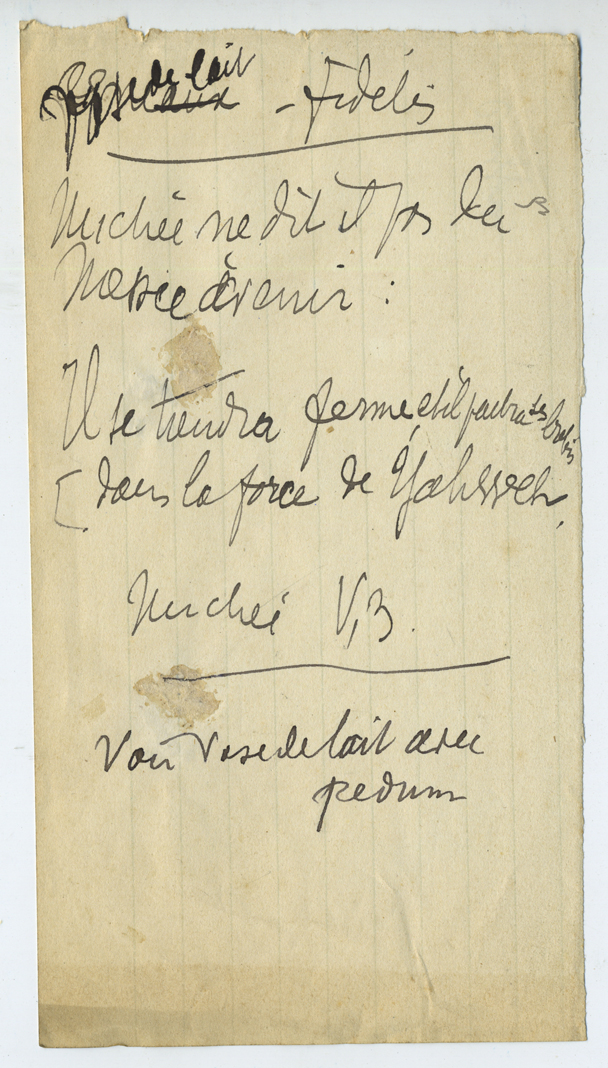 Vase de lait - Fidelis
Michée ne dit il pas du
Messie à venir :
Il se tiendra ferme, et il paîtra ses brebis
[ dans la force de Yahweh,
Michée V, 3.
Voir Vase de lait avec
pedum